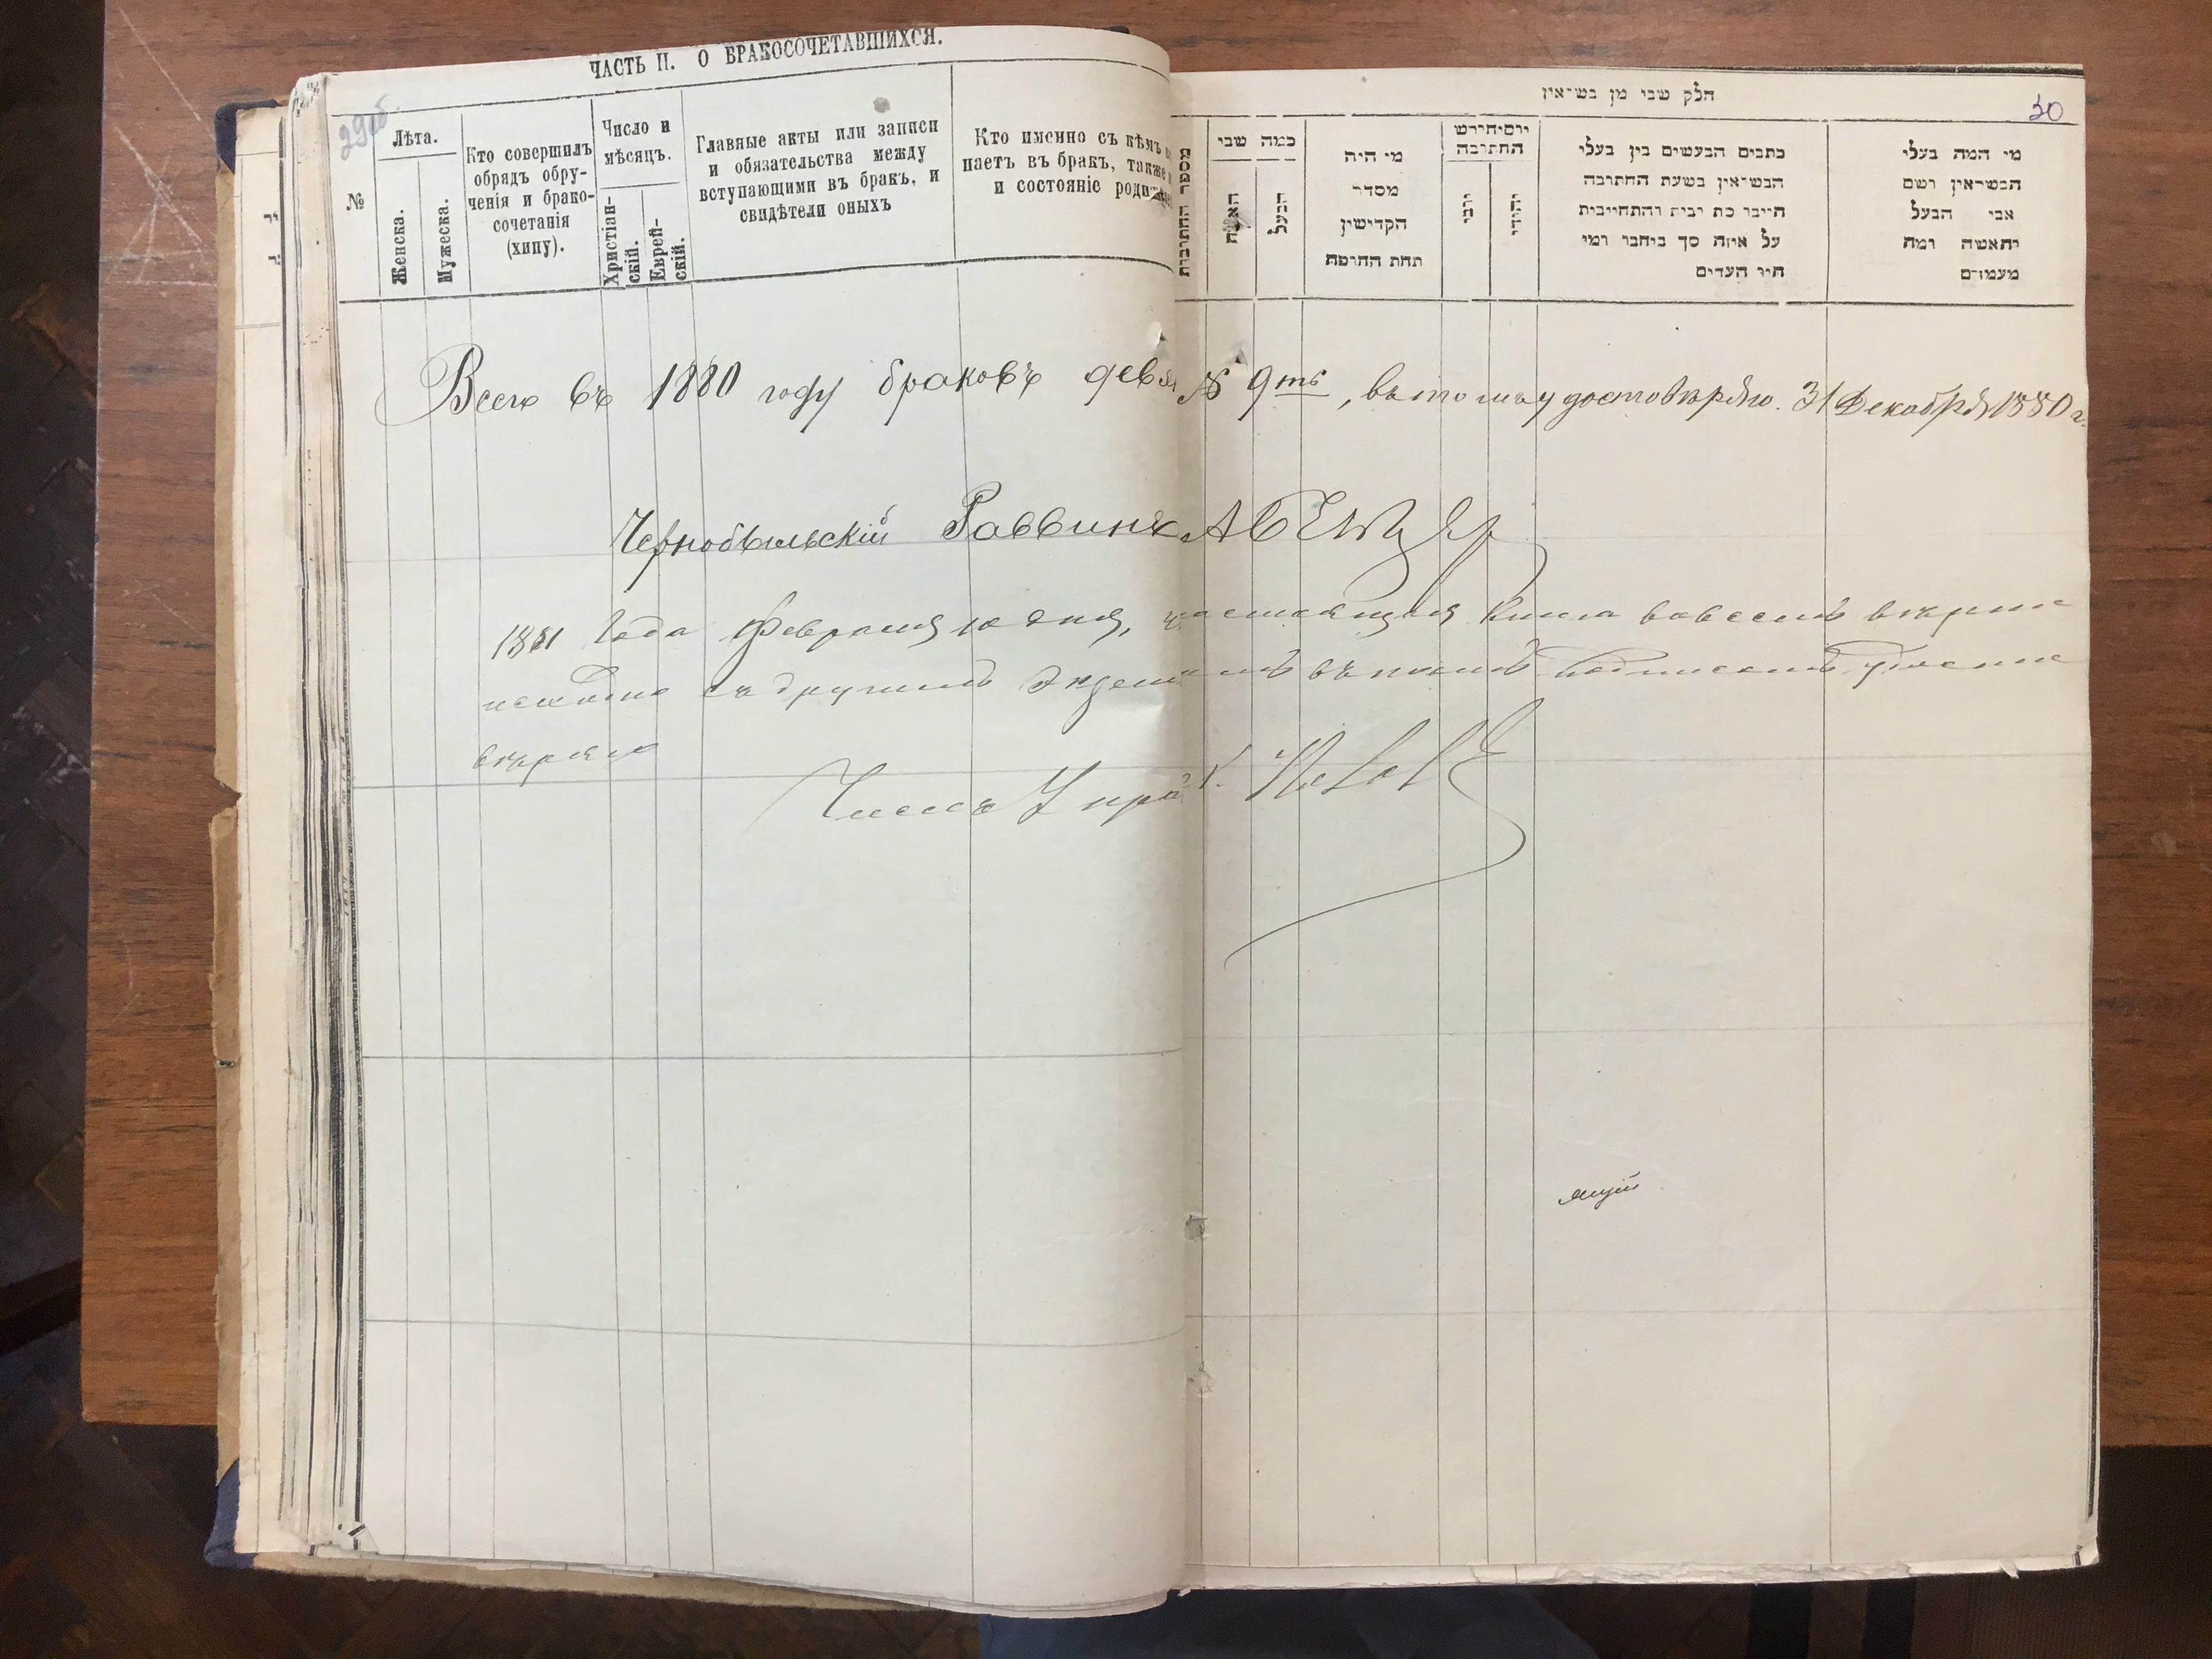 ЧАСТЬ II. О БРАКОСОЧЕТАВШИХСЯ.
29об.
№
Лѣта.
Женска.
Мужеска.
Кто совершилъ
обрядъ обру-
ченія и брако-
сочетанія
(хипу).
Число и
мѣсяцъ.
Христіан-
скій.
Еврей-
скій.
Главные акты или записи
и обязательства между
вступающими въ бракъ, и
свидѣтели оныхъ
Кто именно съ кѣмъ
паетъ въ бракъ, также
и состояніе
חלק שבי מן בש־אין
30
מספר החתובות
כמה שבי
האשה
הבעל
מי היה
מסדר
הקדישין
תחת החופה
יום יחירש
החתובה
יובי
יהודי
כתבים הבעשים בין בעלי
הבש־אין בשעת החתובה
חייבו כת יבית והתחייבית
על איזה סך ביחבר ומי
חיו העדים
מי המה בעלי
הבשראין ושם
אבי הבעל
יתאשה ומה
מעמדם
Всего въ 1880 году браковъ девя 9ть, въ томъ удостовѣряю. 31 Декабря 1880 г.
Чернобыльскій Раввинъ
1881 Года Февраля 10 дня, настоящая Книга вовсемъ вѣрна
съ другимъ въ чемъ подписомъ
вѣряю
Членъ Упра